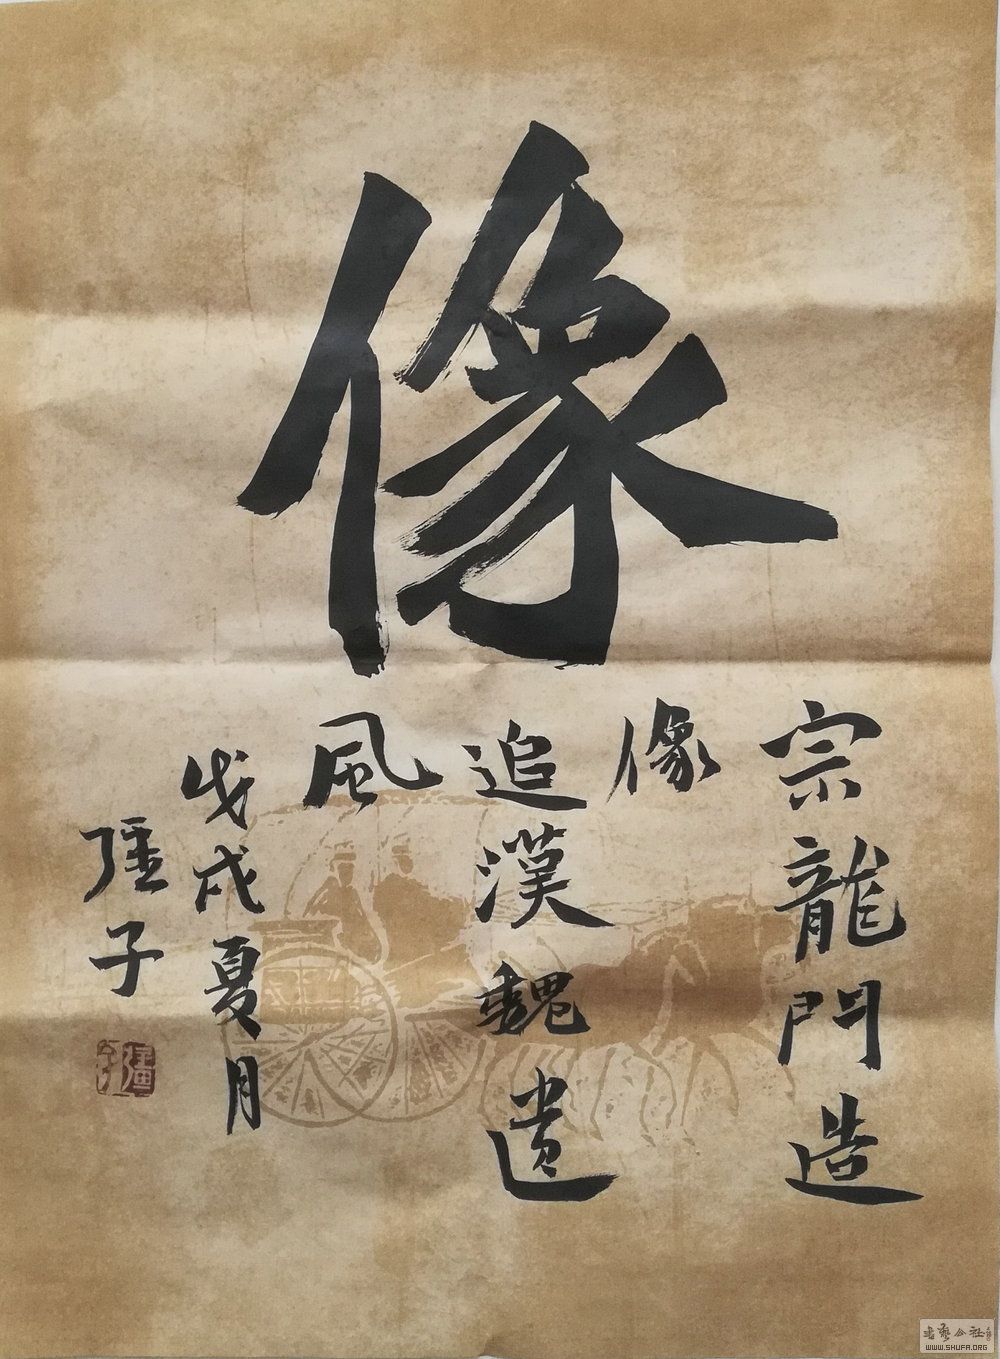 像
宗龍門造
像
追漢魏遺
風
戊戌夏月
子
WWW.SHUFA.ORG